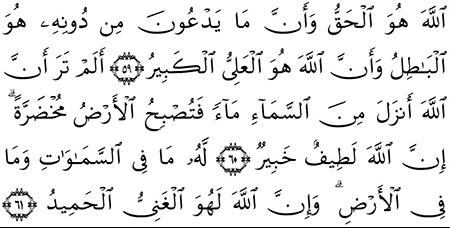 ٱللَّهَ هُوَ ٱلْحَقُّ وَأَنَّ مَا يَدْعُونَ مِن دُونِهِۦ هُوَ
ٱلْبَـٰطِلُ وَأَنَّ ٱللَّهَ هُوَ ٱلْعَلِىُّ ٱلْكَبِيرُ ٥٩ أَلَمْ تَرَ أَنَّ
ٱللَّهَ أَنزَلَ مِنَ ٱلسَّمَآءِ مَآءً فَتُصْبِحُ ٱلْأَرْضُ مُخْضَرَّةً ۗ
إِنَّ ٱللَّهَ لَطِيفٌ خَبِيرٌ ٦٠ لَّهُۥ مَا فِى ٱلسَّمَـٰوَٰتِ وَمَا
فِى ٱلْأَرْضِ ۗ وَإِنَّ ٱللَّهَ لَهُوَ ٱلْغَنِىُّ ٱلْحَمِيدُ ٦١